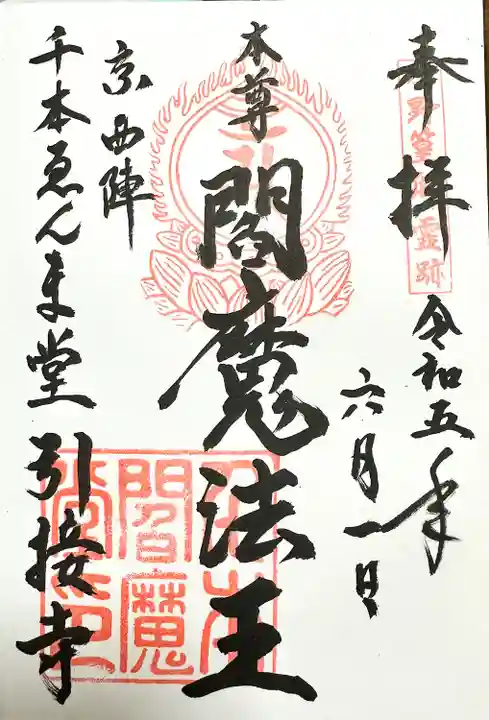 奉拝
令和五年
六月一日
本尊
閻魔法王
京西陣
千本ゑんま堂
引接寺